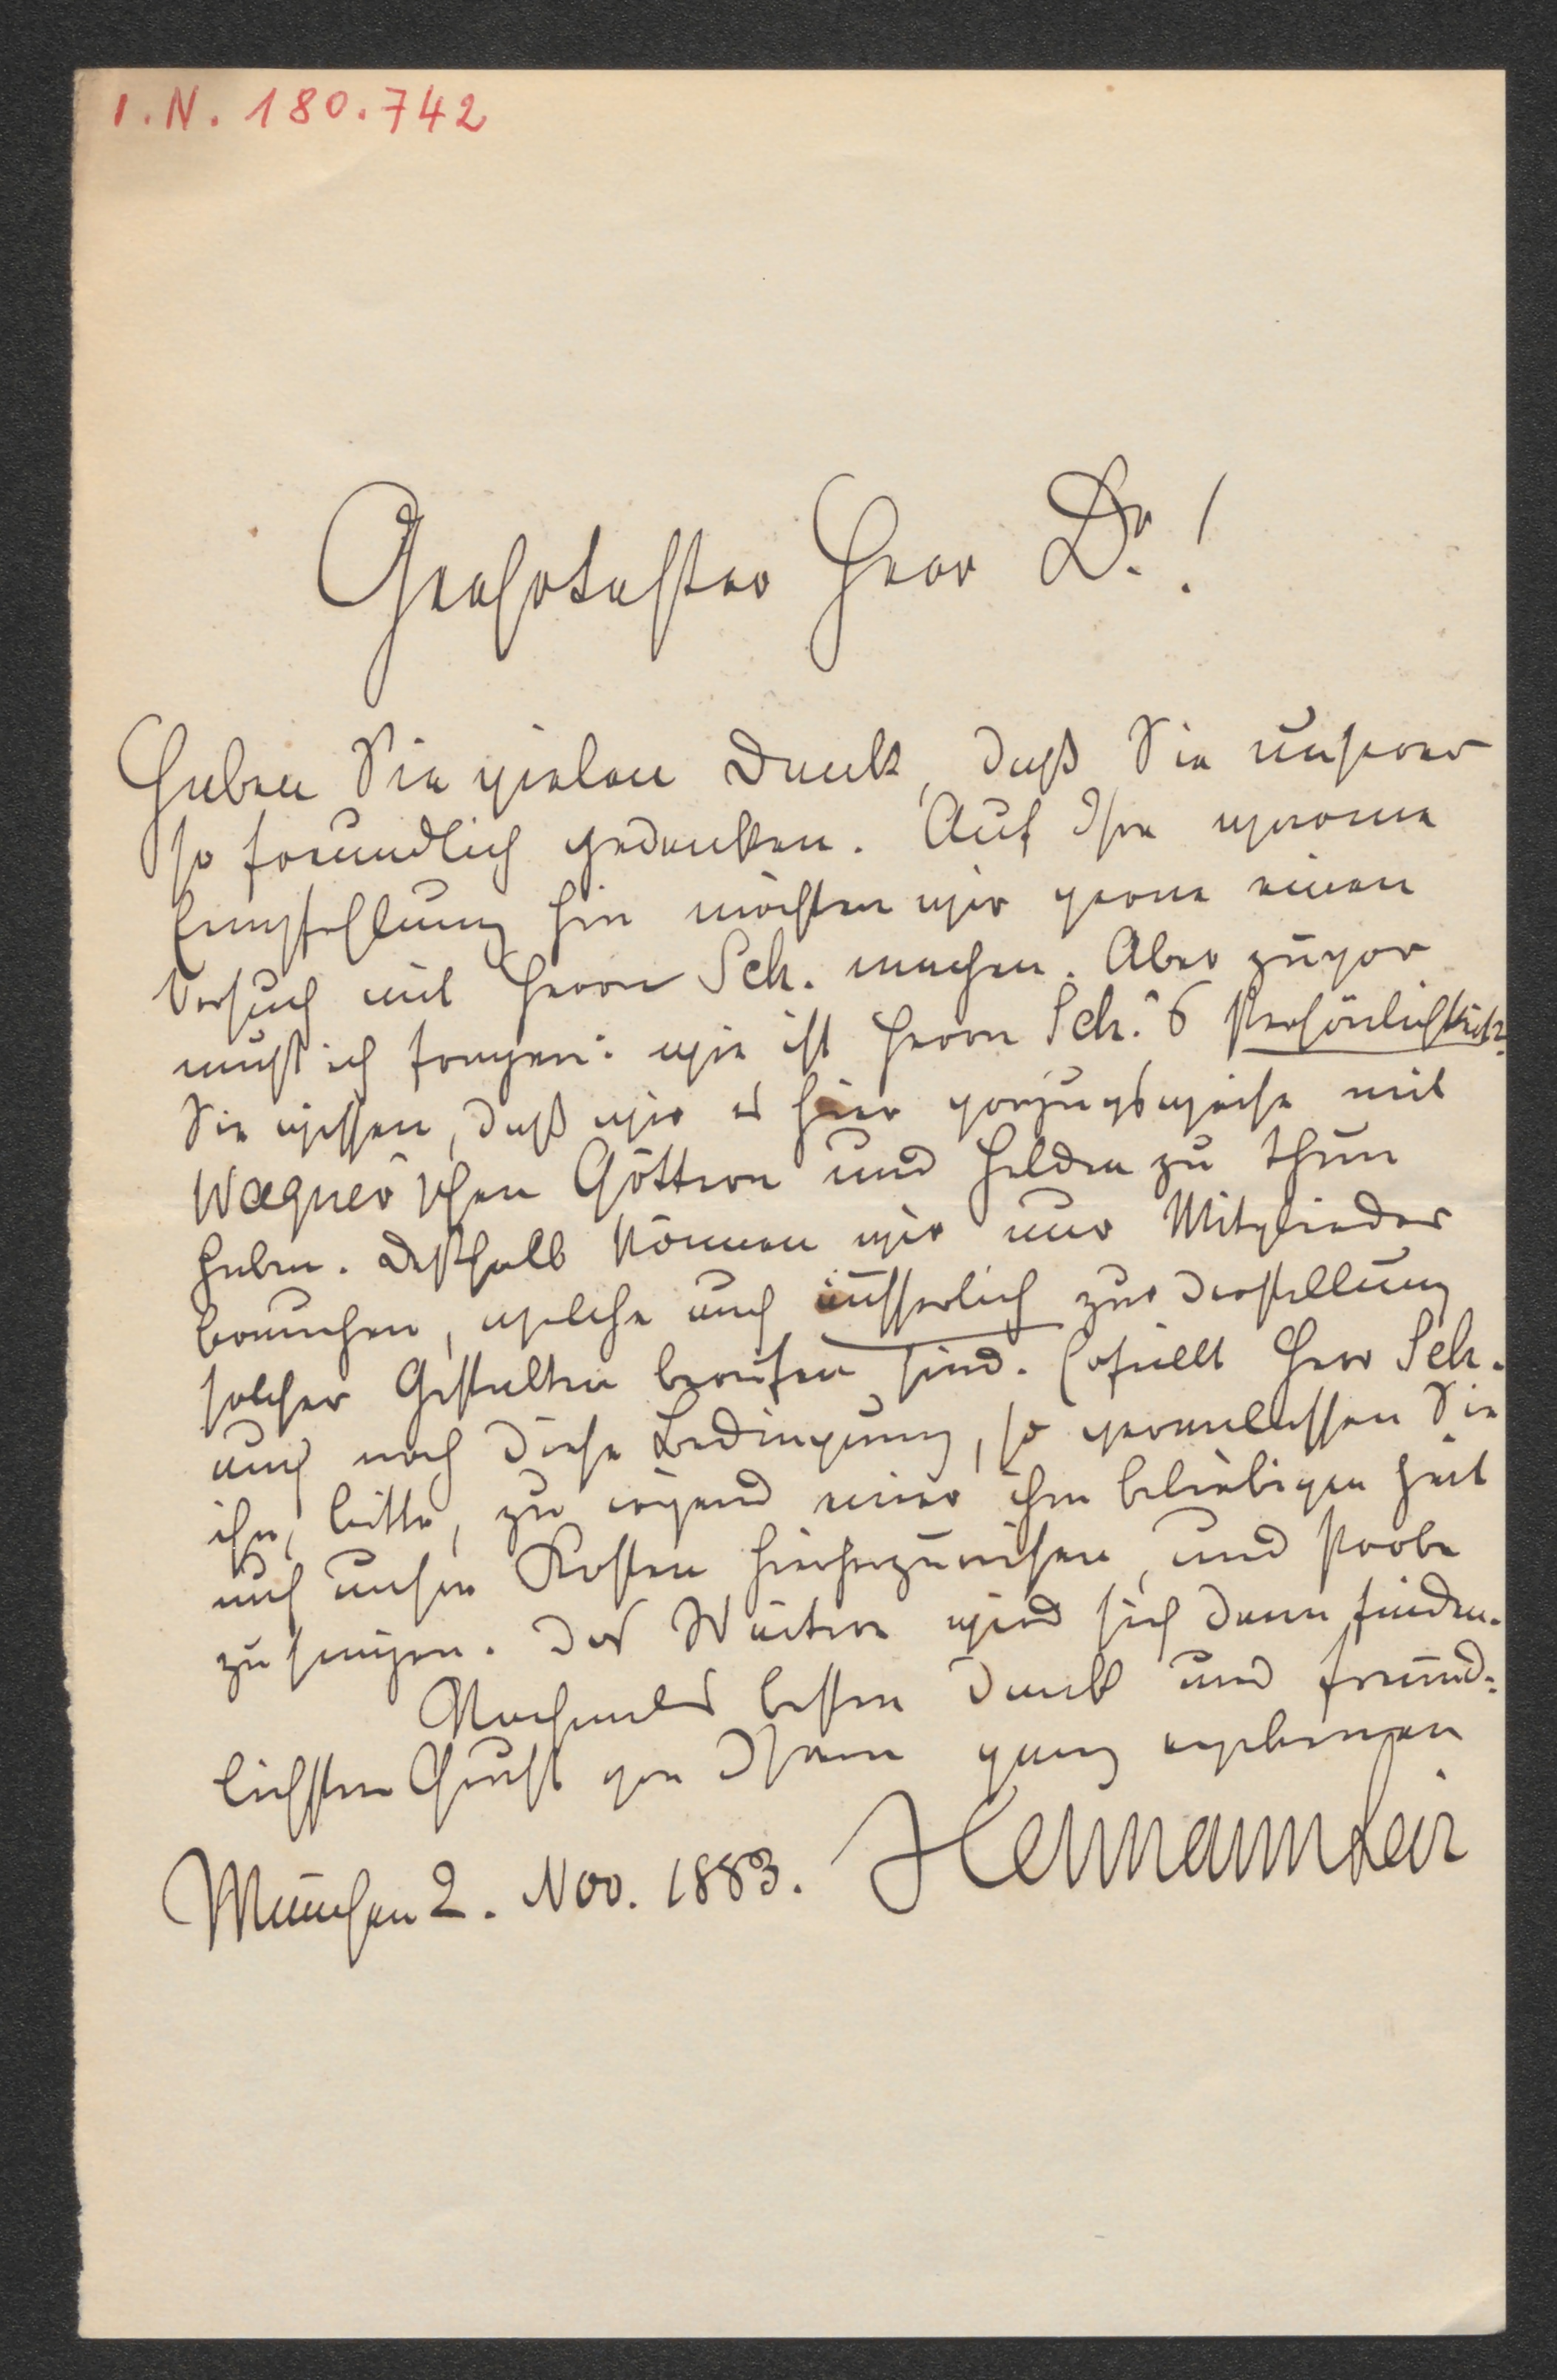 I.N. 180.742
Geehrtester Herr Dr.!
Haben Sie vielen Dank, daß Sie unserer
so freundlich gedenken. Auf Ihre warme
Empfehlung hin möchten wir gerne einen
Versuch mit Herrn Sch. machen. Aber zuvor
muß ich fragen: wie ist Herrn Sch.'s Persönlichkeit?
Sie wissen, daß wir es hier vorzugsweise mit
Wagner'schen Göttern und Helden zu thun
haben. Deßhalb können wir nur Mitglieder
brauchen, welche auch äusserlich zur Darstellung
solcher Gestalten berufen sind. Erfüllt Herr Sch.
auch noch diese Bedingung, so veranlassen Sie
ihn, bitte, zu irgend einer ihm beliebigen Zeit
auf unsere Kosten hierherzureisen, und Probe
zu singen. Das Weitere wird sich dann finden.
Nochmals besten Dank und freund-
lichsten Gruß von Ihrem ganz ergebenen
München 2. Nov. 1883. Hermann Levi